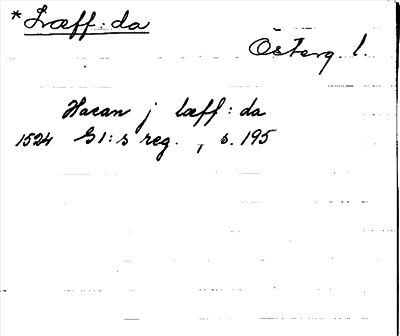 *Læff:da
Österg. l.
Hacan j læff:da
1524 G1:s reg. , s. 195